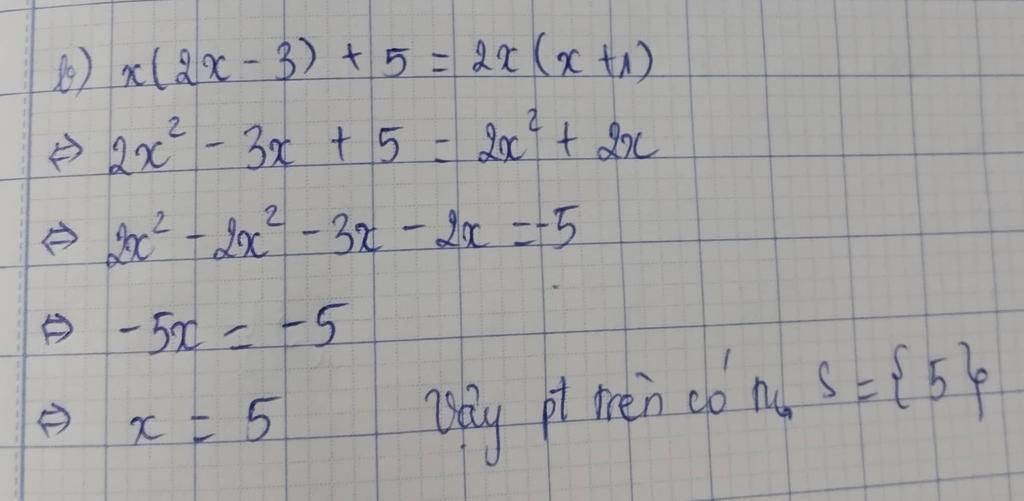 b) x(2x - 3) + 5 = 2x(x + 1)
⇔ 2x² - 3x + 5 = 2x² + 2x
⇔ 2x² - 2x² - 3x - 2x = -5
⇔ -5x = -5
⇔ x = 5 Vậy pt trên có n₀ S = {5}